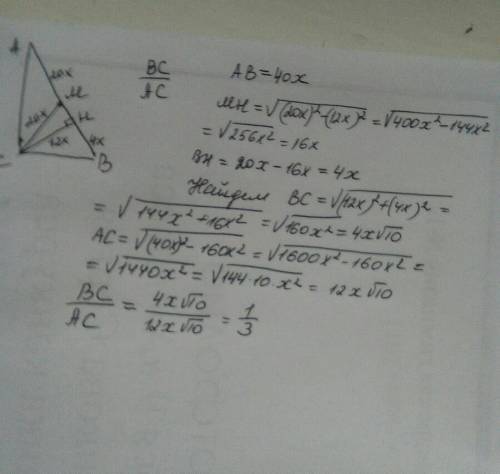 A
20x
M
20x
H
12x
4x
C
B
BC/AC
AB = 40x
MH = √((20x)²-(12x)²) = √(400x²-144x²)
= √(256x²) = 16x
BH = 20x - 16x = 4x
Найдем BC = √((12x)²+(4x)²) =
= √(144x²+16x²) = √(160x²) = 4x√10
AC = √((40x)²-160x²) = √(1600x²-160x²) =
= √(1440x²) = √(144·10·x²) = 12x√10
BC/AC = 4x√10/12x√10 = 1/3